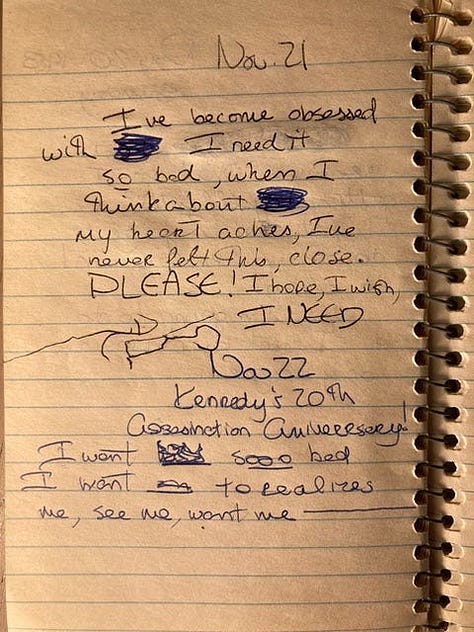 Nov. 21
I've become obsessed
with I need it
so bad, when I
think about
my heart aches, I've
never felt this, close.
PLEASE! I hope, I wish,
I NEED
Nov 22
Kennedy's 20th
Assasination Anniverserey!
I want sooo bad
I want to realizes
me, see me, want me